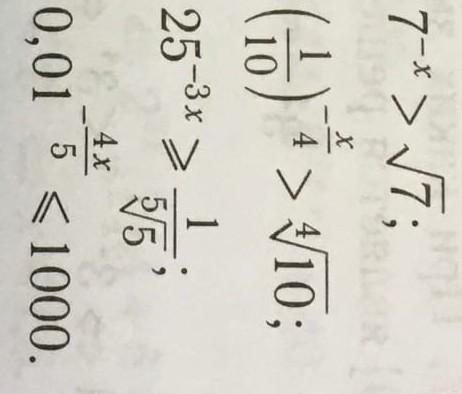 7^{-x} > √7;
(1/10)^{-x/4} > ⁴√10;
25^{-3x} ⩾ 1/(5√5);
0,01^{-4x/5} ⩽ 1000.